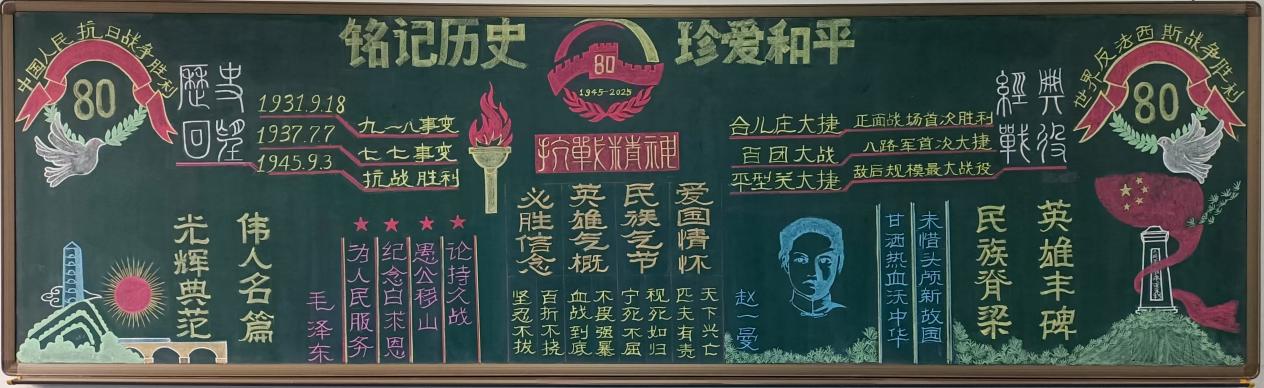 铭记历史 珍爱和平
中国人民抗日战争胜利
80
歷史
回望
1931.9.18 九一八事变
1937.7.7 七七事变
1945.9.3 抗战胜利
80
1945-2025
抗戰精神
合儿庄大捷 正面战场首次胜利
百团大战 八路军首次大捷
平型关大捷 敌后规模最大战役
經典
戰役
世界反法西斯战争胜利
80
伟人名篇
光辉典范
论持久战
愚公移山
纪念白求恩
为人民服务
毛泽东
爱国情怀
天下兴亡
匹夫有责
民族气节
视死如归
宁死不屈
英雄气概
不畏强暴
血战到底
必胜信念
百折不挠
坚忍不拔
英雄丰碑
民族脊梁
未惜头颅新故国
甘洒热血沃中华
赵一曼